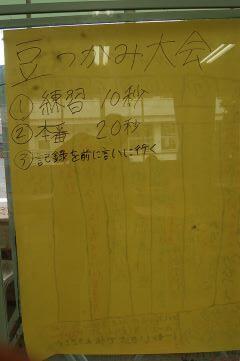 豆つかみ大会
① 練習 10秒
② 本番 20秒
③ 記録を前に言いに行く